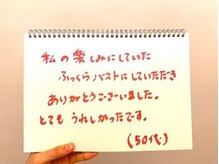 私の楽しみにしていた
ふっくらバストにしていただき
ありがとうございました。
とても うれしかったです。
(50代)